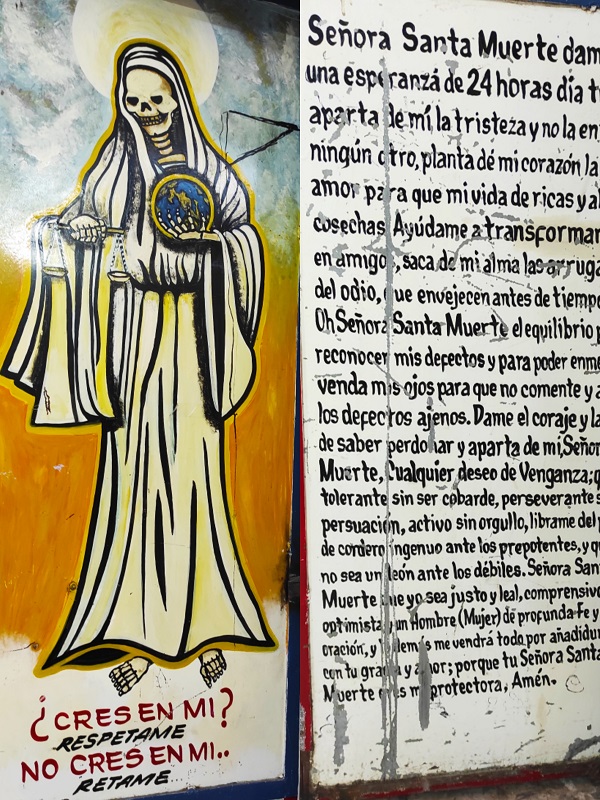 ¿CRES EN MI?
RESPETAME
NO CRES EN MI..
RETAME
Señora Santa Muerte dam
una esperanzá de 24 horas día t
aparta de mí la tristeza y no la en
ningún otro, planta dé mi corazón la
amor para que mi vida de ricas y a
cosechas Ayúdame a transformar
en amigos, saca de mi alma las arruga
del odio, que envejecen antes de tiempo
Oh Señora Santa Muerte el equilibrio p
reconocer mis defectos y para poder enme
venda mis ojos para que no comente y a
los defectos ajenos. Dame el coraje y la
de saber perdonar y aparta de mi, Señor
Muerte, Cualquier deseo de Venganza; q
tolerante sin ser cobarde, perseverante s
persuación, activo sin orgullo, librame del
de cordero ingenuo ante los prepotentes, y q
no sea un león ante los débiles. Señora San
Muerte que yo sea justo y leal, comprensivo
optimista y un Hombre (Mujer) de profunda Fe y
oración, y además me vendrá todo por añadidur
con tu gracia y amor; porque tu Señora Santa
Muerte eres mi protectora, Amén.